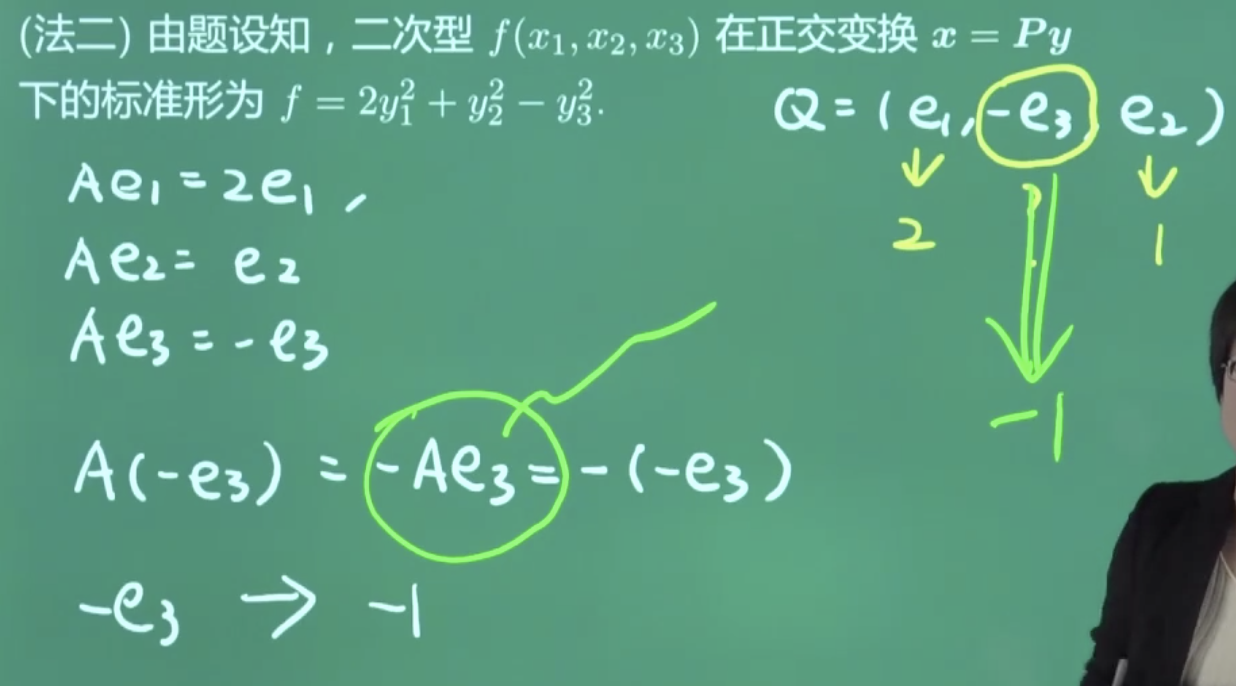 (法二) 由题设知，二次型 f(x₁, x₂, x₃) 在正交变换 x = Py
下的标准形为 f = 2y₁² + y₂² − y₃².
Q = ( e₁, -e₃, e₂ )
↓ ↓ ↓
2 -1 1
Ae₁ = 2e₁ ,
Ae₂ = e₂
Ae₃ = -e₃
A(-e₃) = -Ae₃ = -(-e₃)
-e₃ → -1